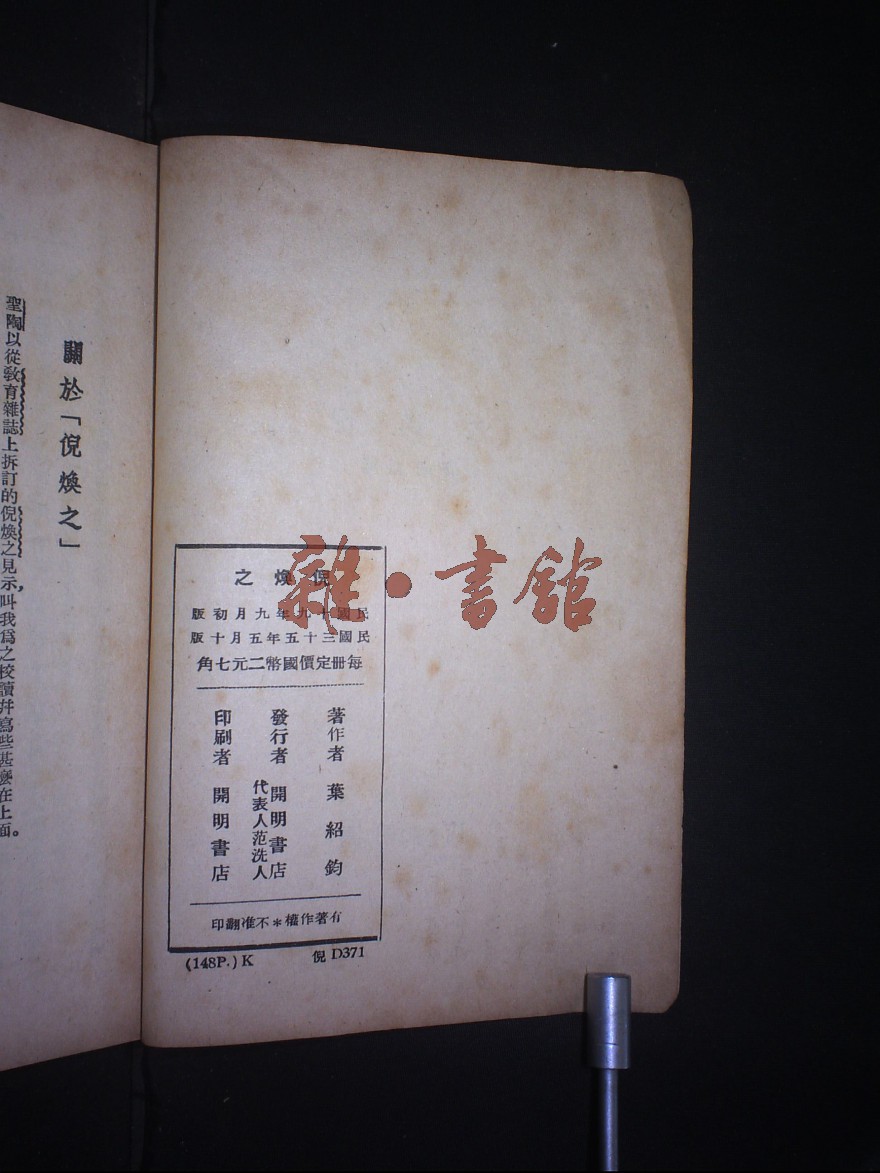 關於「倪煥之」
聖陶以從教育雜誌上拆訂的倪煥之見示,叫我爲之校讀幷寫些甚麼在上面。
雜·書館
倪煥之
民國十九年九月初版
民國三十五年五月十版
每冊定價國幣二元七角
著作者 葉紹鈞
發行者 開明書店
代表人范洗人
印刷者 開明書店
有著作權*不准翻印
(148P.) K 倪 D371